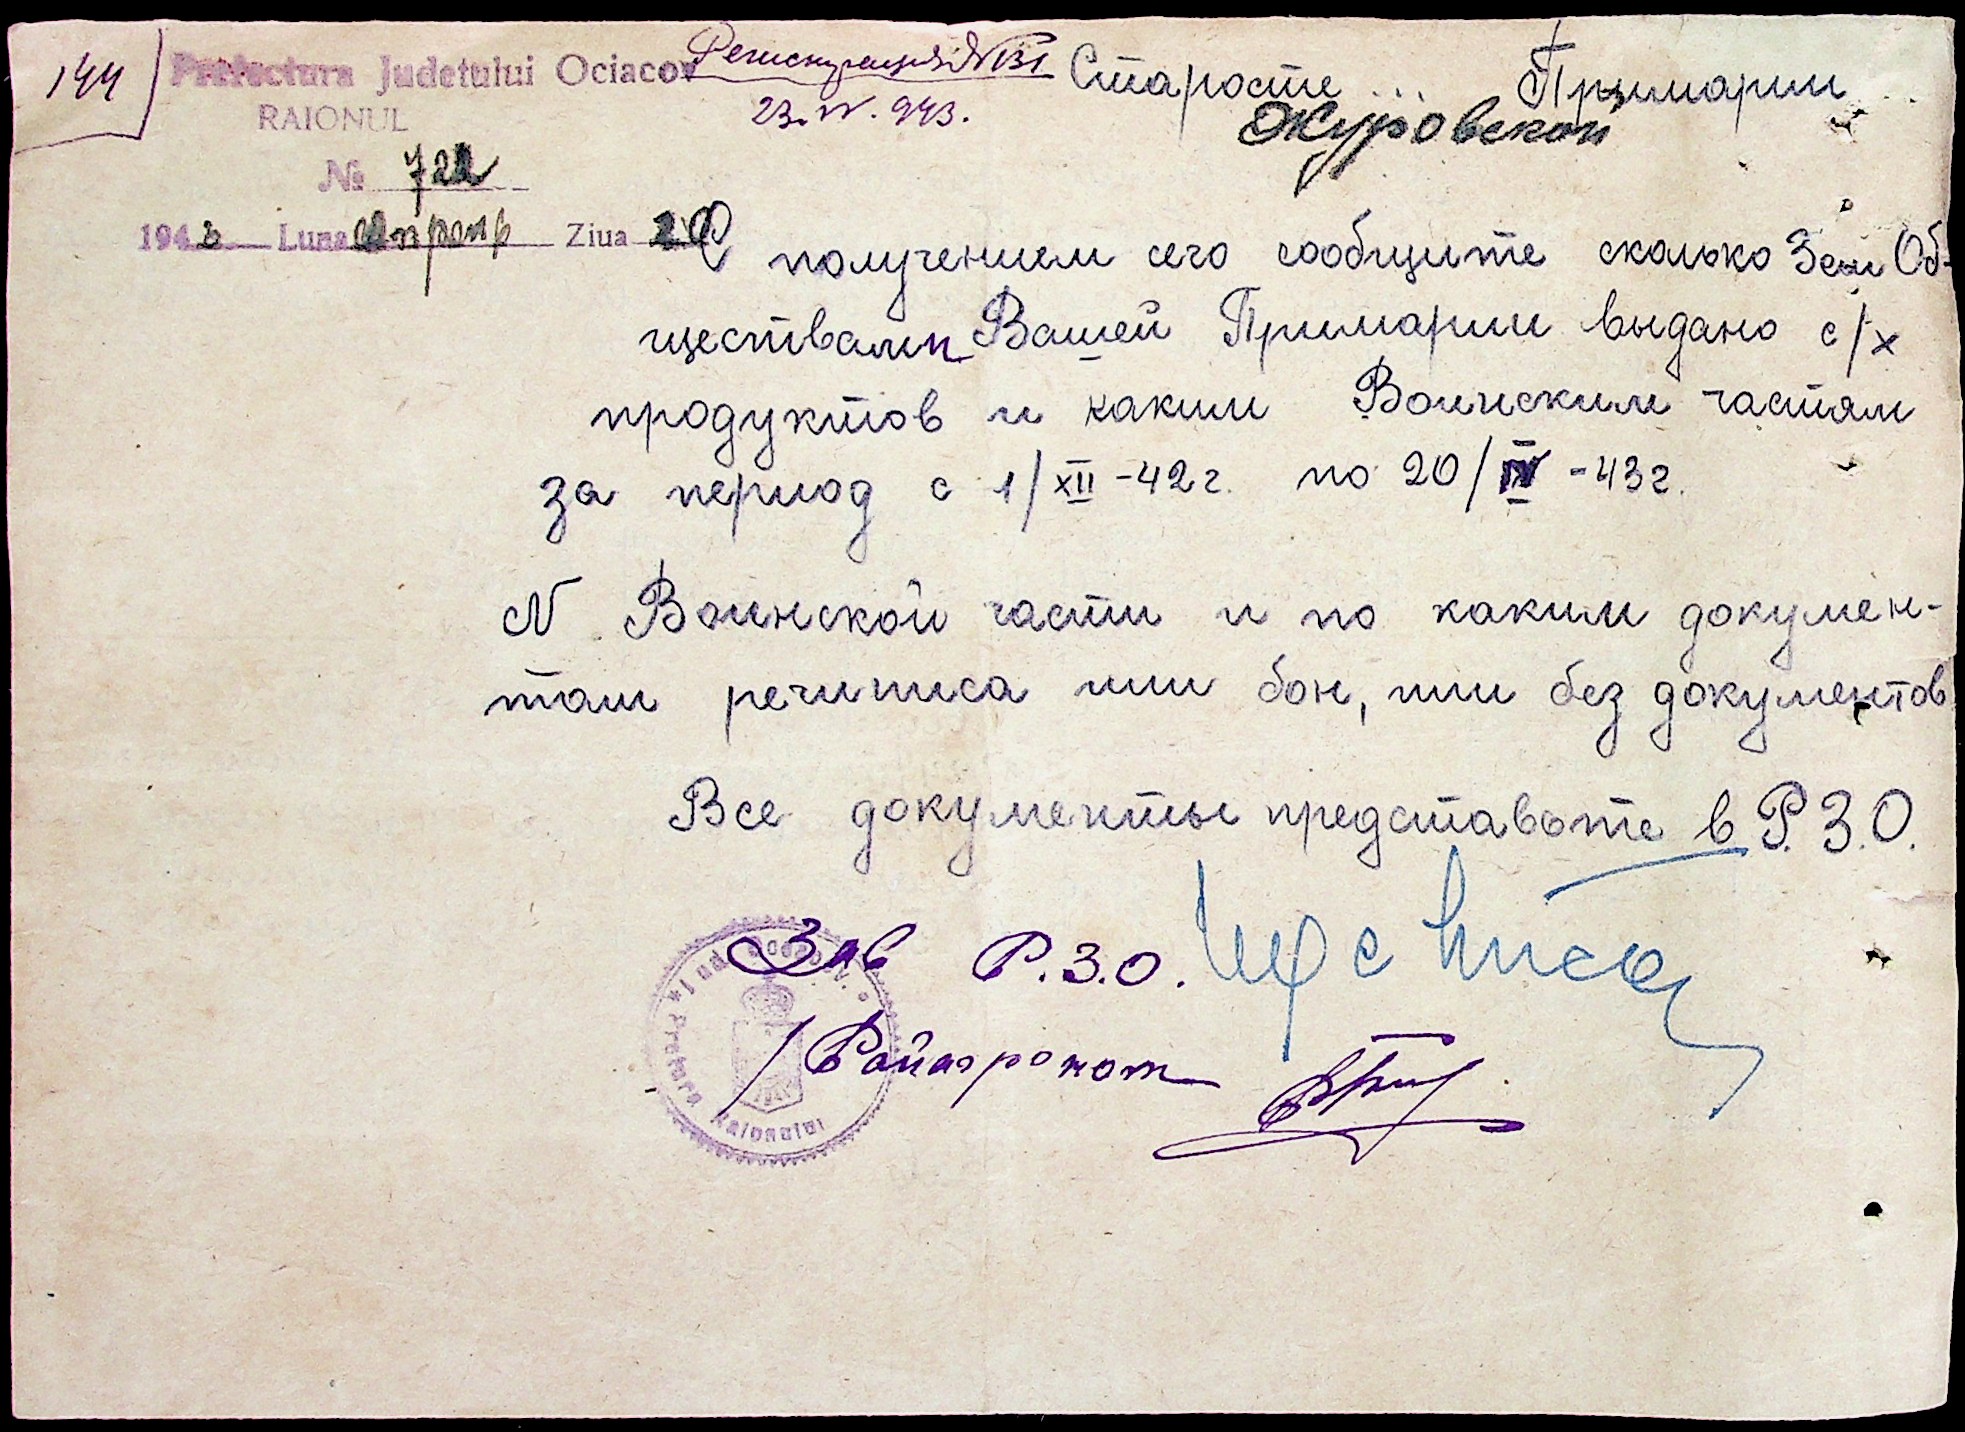 144
Prefectura Judetului Ociacov
RAIONUL
№ 722
1943 Luna апрель Ziua 20
Регистрация № 131
23.IV.943.
Старосте ... Примарии
Журовской
С получением сего сообщите сколько Зем Об-
ществами Вашей Примарии выдано с/х
продуктов и каким Воинским частям
за период с 1/XII-42г. по 20/IV-43г.
N Воинской части и по каким докумен-
там речиписа или бон, или без документов
Все документы представьте в Р.З.О.
Зав Р.З.О.
/Райагроном
Jud. Oceacov
Pretura Raionului